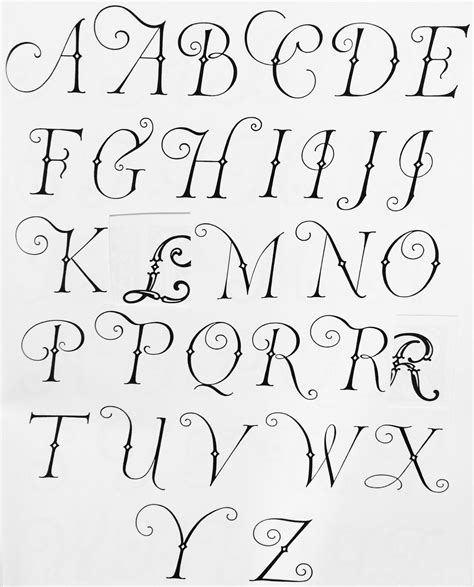 A A B C D E
F G H I I J J
K L M N O
P P Q R R R
T U V W X
Y Z